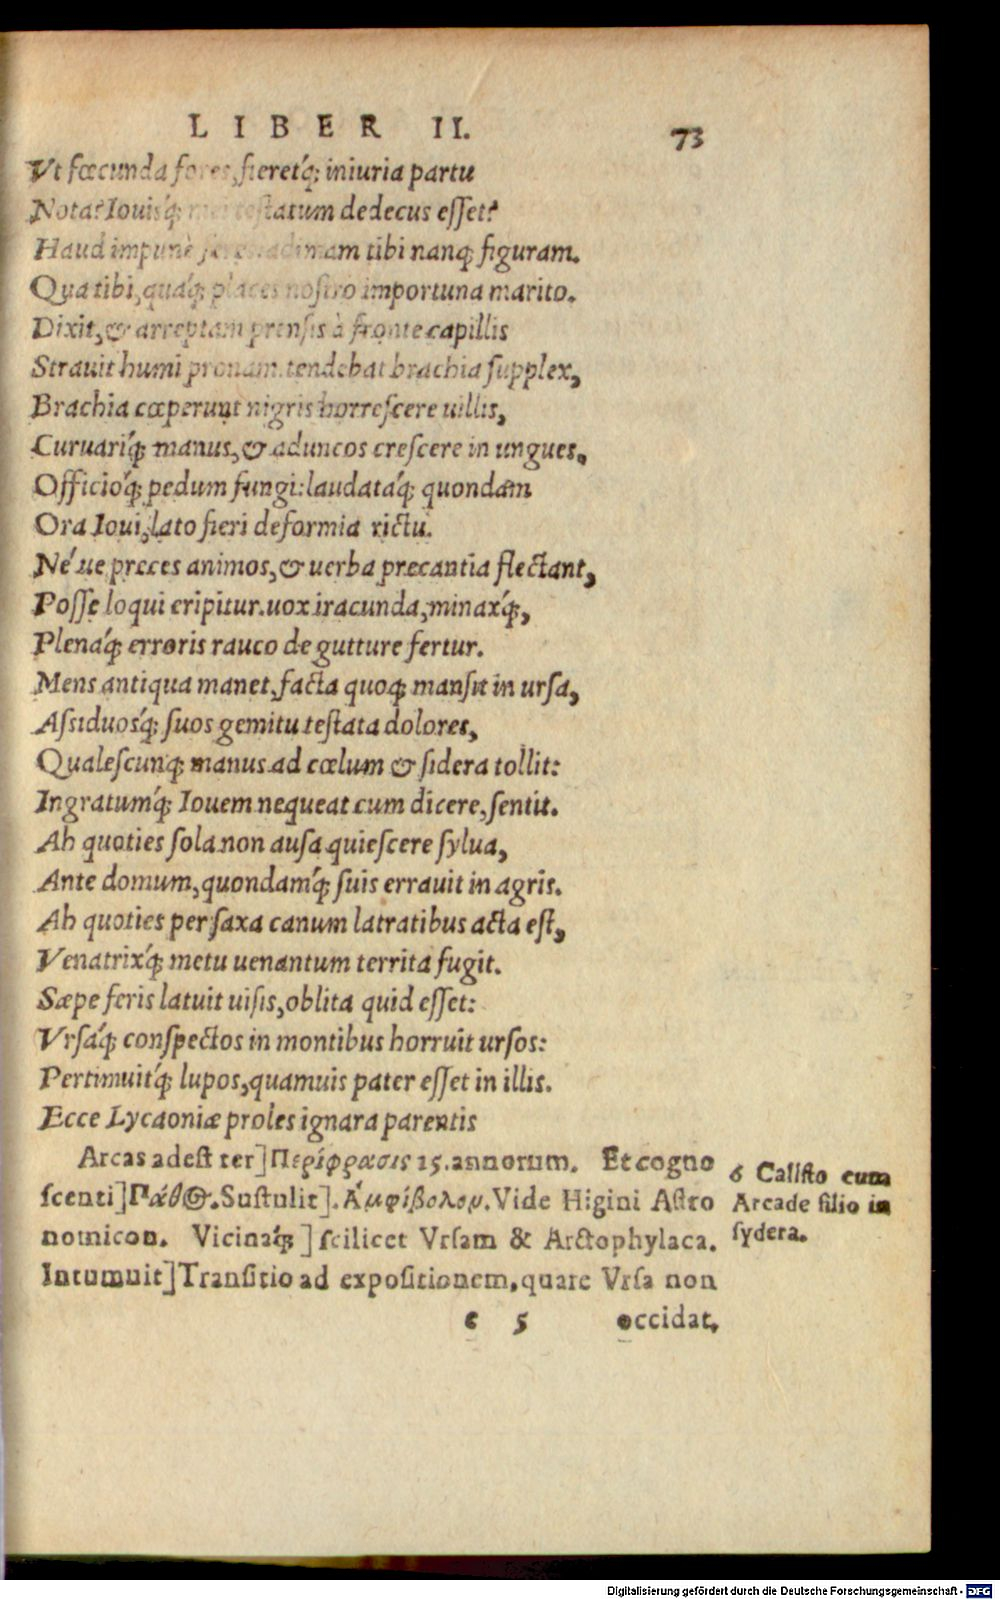 LIBER II. 73
Vt fœcunda fores, fieretq́; iniuria partu
Nota? Iouisq́; mei testatum dedecus esset?
Haud impunè feres. adimam tibi nanq; figuram.
Qua tibi, quáq; places nostro importuna marito.
Dixit, & arreptam prensis à fronte capillis
Strauit humi pronam. tendebat brachia supplex,
Brachia cœperunt nigris horrescere uillis,
Curuariq́; manus, & aduncos crescere in ungues,
Officioq́; pedum fungi: laudataq́; quondam
Ora Ioui, lato fieri deformia rictu.
Né ue preces animos, & uerba precantia flectant,
Posse loqui eripitur. uox iracunda, minaxq́;,
Plenaq́; erroris rauco de gutture fertur.
Mens antiqua manet, facta quoq; mansit in ursa,
Assiduosq́; suos gemitu testata dolores,
Qualescunq; manus ad cœlum & sidera tollit:
Ingratumq́; Iouem nequeat cum dicere, sentit.
Ah quoties sola non ausa quiescere sylua,
Ante domum, quondamq́; suis errauit in agris.
Ah quoties per saxa canum latratibus acta est,
Venatrixq́; metu uenantum territa fugit.
Sæpe feris latuit uisis, oblita quid esset:
Vrsaq́; conspectos in montibus horruit ursos:
Pertimuitq́; lupos, quamuis pater esset in illis.
Ecce Lycaoniæ proles ignara parentis
Arcas adest ter] Περίφρασις 15. annorum. Et cogno
scenti] Πάθος. Sustulit]. Ἀμφίβολον. Vide Higini Astro
nomicon. Vicinaq́;] scilicet Vrsam & Arctophylaca.
Intumuit] Transitio ad expositionem, quare Vrsa non
6 Calisto cum
Arcade filio in
sydera.
e 5 occidat,
Digitalisierung gefördert durch die Deutsche Forschungsgemeinschaft - DFG